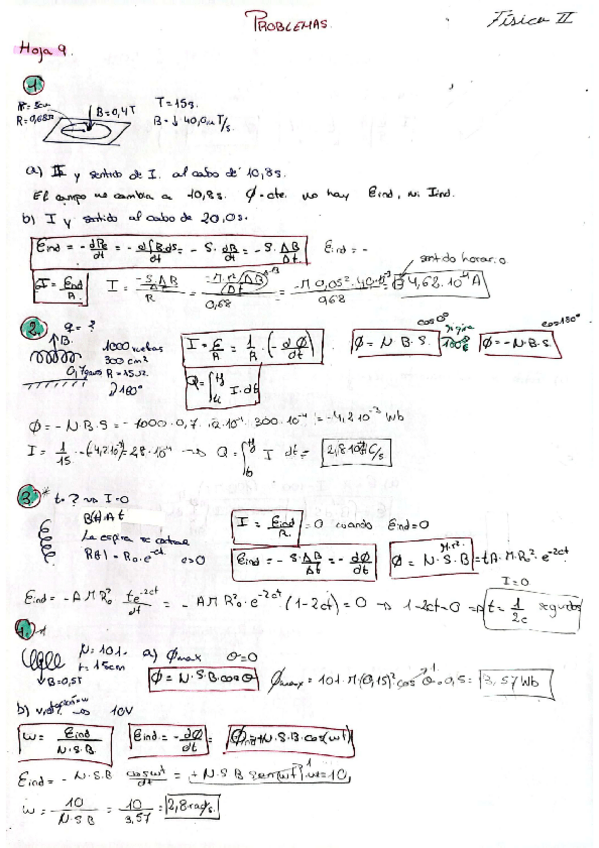 PROBLEMAS.
Física II
Hoja 9.
1.
R = 0,68Ω
B = 0,4T
T = 15s.
B = ↓ 40,0 mT/s.
a) y sentido de I. al cabo de 10,8s.
El campo no cambia a 10,8s. Φ = cte. no hay Eind, ni Iind.
b) I y sentido al cabo de 20,0s.
Eind = - dΦ/dt = - d∫BdS/dt = - S · dB/dt = - S · ΔB/Δt
Eind = -
sentido horario
I = Eind/R. I = -S ΔB/Δt / R = 0,68 = π 0,05² · 40 · 10⁻³ / 0,68 = 4,68 · 10⁻⁴ A
2. q = ?
B.
1000 vueltas
300 cm²
0,7 gauss R = 15Ω
180°
I = E/R = 1/R · (- dΦ/dt)
Q = ∫ I · dt
Φ = N · B · S. cos 0°
Φ = - N · B · S. cos 180°
Φ = - N · B · S = - 1000 · 0,7 · 10⁻⁴ · 300 · 10⁻⁴ = - 4,2 · 10⁻³ Wb
I = 1/15 · -(-4,2 · 10⁻³) = 2,8 · 10⁻⁴ → Q = ∫ I dt = 2,8 · 10⁻⁴ C/s
3. * t = ? → I = 0
B(t) = A t
La espira se contrae
R(t) = R₀ · e^-ct c>0
I = Eind/R. = 0 cuando Eind = 0
Eind = - S · ΔB/Δt = - dΦ/dt
Φ = N · S · B = tA · π · R₀² · e^-2ct
π · r².
Eind = - A π R₀² te^-2ct/dt = - A π R₀² · e^-2ct (1 - 2ct) = 0 → 1 - 2ct = 0 → t = 1/2c segundos
I = 0
4.
N = 101
r = 15cm
B = 0,5T
a) Φmax θ = 0
Φ = N · S · B cos θ
Φmax = 101 · π (0,15)² cos θ · 0,5 = 3,57 Wb
b) → 10V
ω = Eind / N · S · B.
Eind = - dΦ/dt = N · S · B · cos(ωt)
Eind = - N · S · B cos ωt/dt = + N · S B sen(ωt) · ω = 10
ω = 10 / N · S · B = 10/3,57 = 2,8 rad/s.